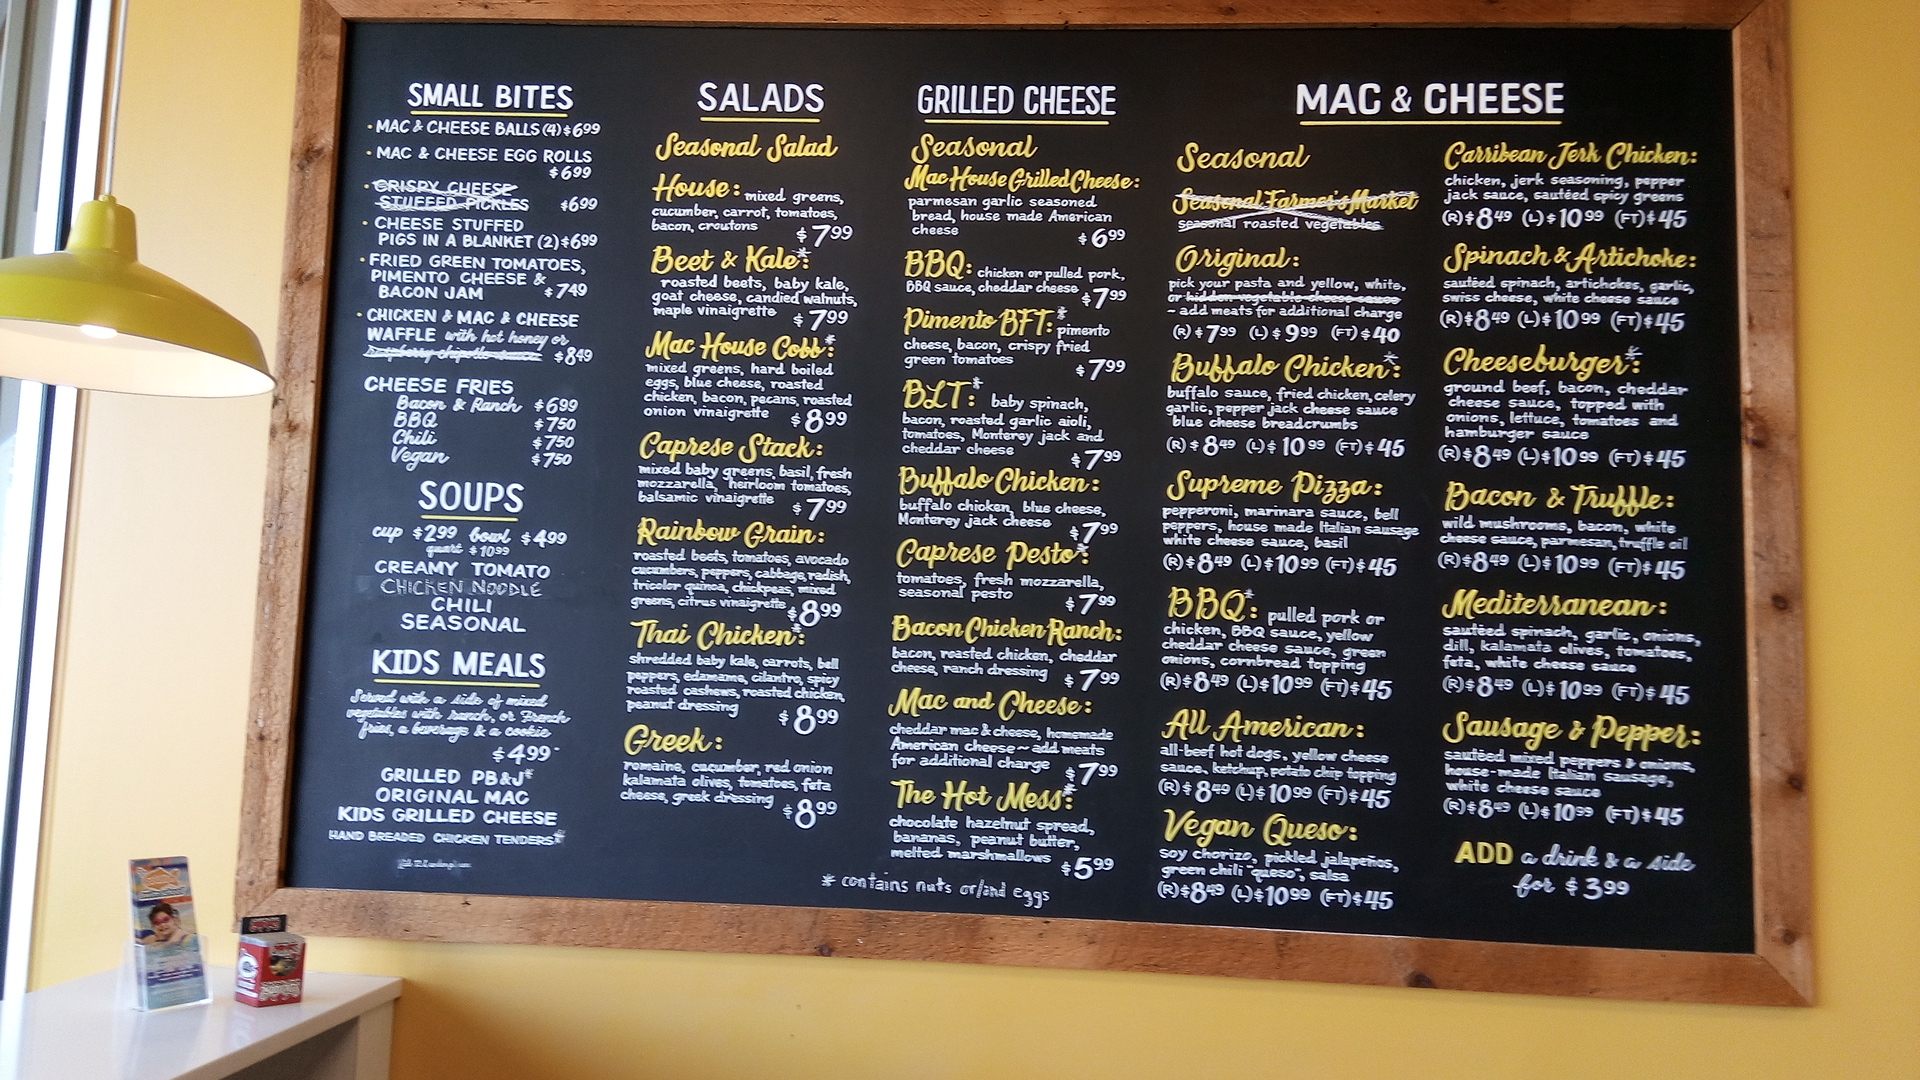 SMALL BITES
• MAC & CHEESE BALLS (4) $6.99
• MAC & CHEESE EGG ROLLS
$6.99
• CRISPY CHEESE
STUFFED PICKLES $6.99
• CHEESE STUFFED
PIGS IN A BLANKET (2) $6.99
• FRIED GREEN TOMATOES,
PIMENTO CHEESE &
BACON JAM $7.49
• CHICKEN & MAC & CHEESE
WAFFLE with hot honey or
raspberry chipotle sauce $8.49
CHEESE FRIES
Bacon & Ranch $6.99
BBQ $7.50
Chili $7.50
Vegan $7.50
SOUPS
cup $2.99 bowl $4.99
quart $10.99
CREAMY TOMATO
CHICKEN NOODLE
CHILI
SEASONAL
KIDS MEALS
Served with a side of mixed
vegetables with ranch, or French
fries, a beverage & a cookie
$4.99
GRILLED PB&J*
ORIGINAL MAC
KIDS GRILLED CHEESE
HAND BREADED CHICKEN TENDERS*
SALADS
Seasonal Salad
House: mixed greens,
cucumber, carrot, tomatoes,
bacon, croutons $7.99
Beet & Kale*:
roasted beets, baby kale,
goat cheese, candied walnuts,
maple vinaigrette $7.99
Mac House Cobb*:
mixed greens, hard boiled
eggs, blue cheese, roasted
chicken, bacon, pecans, roasted
onion vinaigrette $8.99
Caprese Stack:
mixed baby greens, basil, fresh
mozzarella, heirloom tomatoes,
balsamic vinaigrette $7.99
Rainbow Grain:
roasted beets, tomatoes, avocado
cucumbers, peppers, cabbage, radish,
tricolor quinoa, chickpeas, mixed
greens, citrus vinaigrette $8.99
Thai Chicken*:
shredded baby kale, carrots, bell
peppers, edamame, cilantro, spicy
roasted cashews, roasted chicken,
peanut dressing $8.99
Greek:
romaine, cucumber, red onion
kalamata olives, tomatoes, feta
cheese, greek dressing $8.99
GRILLED CHEESE
Seasonal
Mac House Grilled Cheese:
parmesan garlic seasoned
bread, house made American
cheese $6.99
BBQ: chicken or pulled pork,
BBQ sauce, cheddar cheese $7.99
Pimento BFT:* pimento
cheese, bacon, crispy fried
green tomatoes $7.99
BLT*: baby spinach,
bacon, roasted garlic aioli,
tomatoes, Monterey jack and
cheddar cheese $7.99
Buffalo Chicken:
buffalo chicken, blue cheese,
Monterey jack cheese $7.99
Caprese Pesto*:
tomatoes, fresh mozzarella,
seasonal pesto $7.99
Bacon Chicken Ranch:
bacon, roasted chicken, cheddar
cheese, ranch dressing $7.99
Mac and Cheese:
cheddar mac & cheese, homemade
American cheese ~ add meats
for additional charge $7.99
The Hot Mess*:
chocolate hazelnut spread,
bananas, peanut butter,
melted marshmallows $5.99
* contains nuts or/and eggs
MAC & CHEESE
Seasonal
Seasonal Farmer's Market
seasonal roasted vegetables
Original:
pick your pasta and yellow, white,
or hidden vegetable cheese sauce
~ add meats for additional charge
(R) $7.99 (L) $9.99 (FT) $40
Buffalo Chicken*:
buffalo sauce, fried chicken, celery
garlic, pepper jack cheese sauce
blue cheese breadcrumbs
(R) $8.49 (L) $10.99 (FT) $45
Supreme Pizza:
pepperoni, marinara sauce, bell
peppers, house made Italian sausage
white cheese sauce, basil
(R) $8.49 (L) $10.99 (FT) $45
BBQ*: pulled pork or
chicken, BBQ sauce, yellow
cheddar cheese sauce, green
onions, cornbread topping
(R) $8.49 (L) $10.99 (FT) $45
All American:
all-beef hot dogs, yellow cheese
sauce, ketchup, potato chip topping
(R) $8.49 (L) $10.99 (FT) $45
Vegan Queso:
soy chorizo, pickled jalapeños,
green chili "queso", salsa
(R) $8.49 (L) $10.99 (FT) $45
Carribean Jerk Chicken:
chicken, jerk seasoning, pepper
jack sauce, sautéed spicy greens
(R) $8.49 (L) $10.99 (FT) $45
Spinach & Artichoke:
sautéed spinach, artichokes, garlic,
swiss cheese, white cheese sauce
(R) $8.49 (L) $10.99 (FT) $45
Cheeseburger*:
ground beef, bacon, cheddar
cheese sauce, topped with
onions, lettuce, tomatoes and
hamburger sauce
(R) $8.49 (L) $10.99 (FT) $45
Bacon & Truffle:
wild mushrooms, bacon, white
cheese sauce, parmesan, truffle oil
(R) $8.49 (L) $10.99 (FT) $45
Mediterranean:
sautéed spinach, garlic, onions,
dill, kalamata olives, tomatoes,
feta, white cheese sauce
(R) $8.49 (L) $10.99 (FT) $45
Sausage & Pepper:
sautéed mixed peppers & onions,
house-made Italian sausage,
white cheese sauce
(R) $8.49 (L) $10.99 (FT) $45
ADD a drink & a side
for $3.99